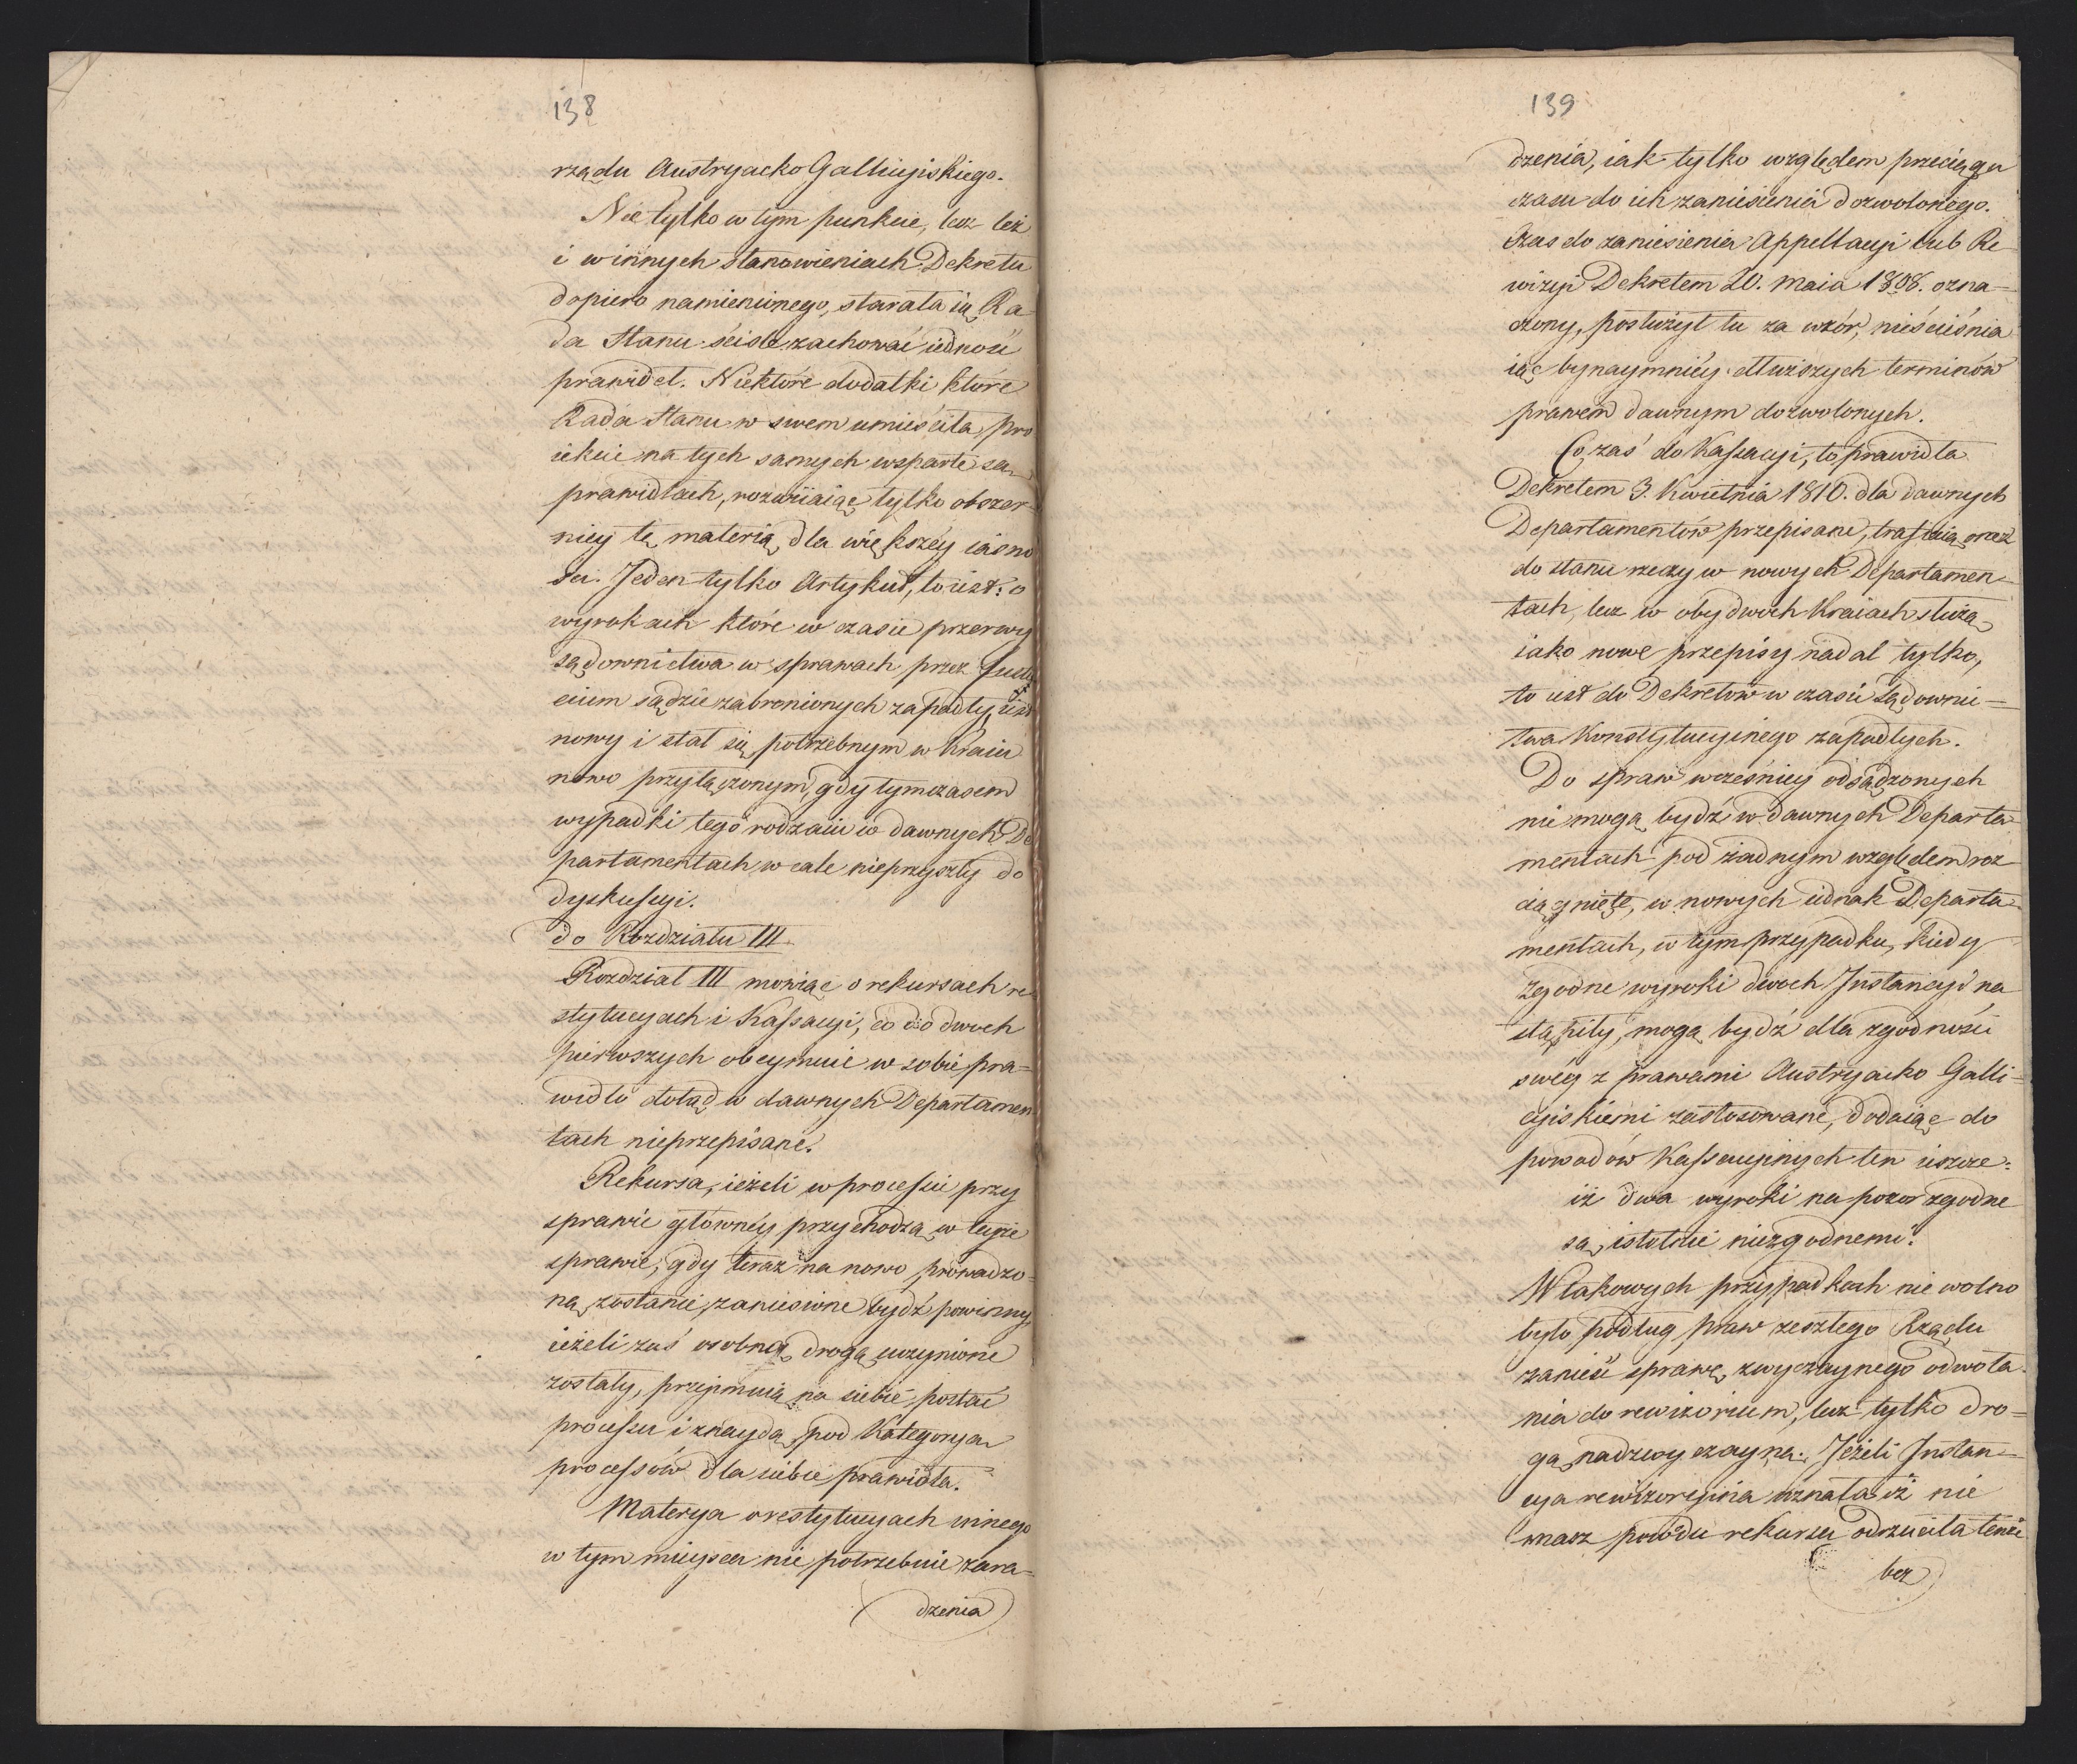 138
rządu Austryacko Gallicyiskiego.
Nie tylko w tym punkcie, lecz też
i w innych stanowieniach Dekretu
dopiero namienionego, starała się Ra-
da Stanu ściśle zachować iedność
prawideł. Niektóre dodatki które
Rada Stanu w swem umieściła pro
iekcie na tych samych wsparte są
prawidłach, rozwiiaiąc tylko obszer-
niey tę materią dla większéy iasno
ści. Jeden tylko Artykuł, to iest: o
wyrokach które w czasie przerwy
sądownictwa w sprawach przez Justi
cium sądzić zabronionych zapadły, iest
nowy i stał się potrzebnym w Kraiu
nowo przyłączonym, gdy tymczasem
wypadki tego rodzaiu w dawnych De
partamentach w cale nieprzyszły do
dyskussyi.
do Rozdziału III.
Rozdział III mówiąc o rekursach re-
stytucyach i Kassacyi, co do dwoch
pierwszych obeymuie w sobie pra-
widło dotąd w dawnych Departamen
tach nieprzepisane.
Rekursa, ieżeli w processie przy
sprawie główney przychodzą w teyże
sprawie, gdy teraz na nowo prowadzo-
ną zostanie, zaniesione bydź powinny
ieżeli zaś osobną drogą uczynione
zostały, przejmuią na siebie postać
processu i znaydą pod Kategoryą
processów dla siebie prawidła.
Materya o restytucyach innego
w tym mieyscu nie potrzebuie zara-
dzenia
139
dzenia, iak tylko względem przeciągu
czasu do ich zaniesienia dozwolonego.
Czas do zaniesienia Appellacyi lub Re
wizyi Dekretem 20. Maia 1808. ozna-
czony, posłużył tu za wzór, nieścieśnia
iąc bynaymniéy dłuższych terminów
prawem dawnym dozwolonych.
Co zaś do Kassacyi, to prawidła
Dekretem 3. Kwietnia 1810. dla dawnych
Departamentów przepisane, trafiaią oraz
do stanu rzeczy w nowych Departamen-
tach, lecz w obydwoch Kraiach służą
iako nowe przepisy nadal tylko,
to iest do Dekretów w czasie Sądowni-
twa Konstytucyinego zapadłych.
Do spraw wcześniey odsądzonych
nie mogą bydź w dawnych Departa-
mentach pod żadnym względem roz-
ciągnięte, w nowych iednak Departa-
mentach, w tym przypadku, kiedy
zgodne wyroki dwoch Instancyi na
stąpiły, mogą bydź dla zgodności
swéy z prawami Austryacko Galli-
cyiskiemi zastosowane, dodaiąc do
powodów Kassacyinych ten ieszcze:
iż dwa wyroki na pozór zgodne
są istotnie niezgodnemi.
W takowych przypadkach nie wolno
było podług praw zeszłego Rządu
zanieść sprawę zwyczaynego odwoła-
nia do rewizorium, lecz tylko dro-
gą nadzwyczayną. Jeżeli Instan-
cya rewizoryina uznała iż nie
masz powodu rekursu odrzuciła tenże
bez